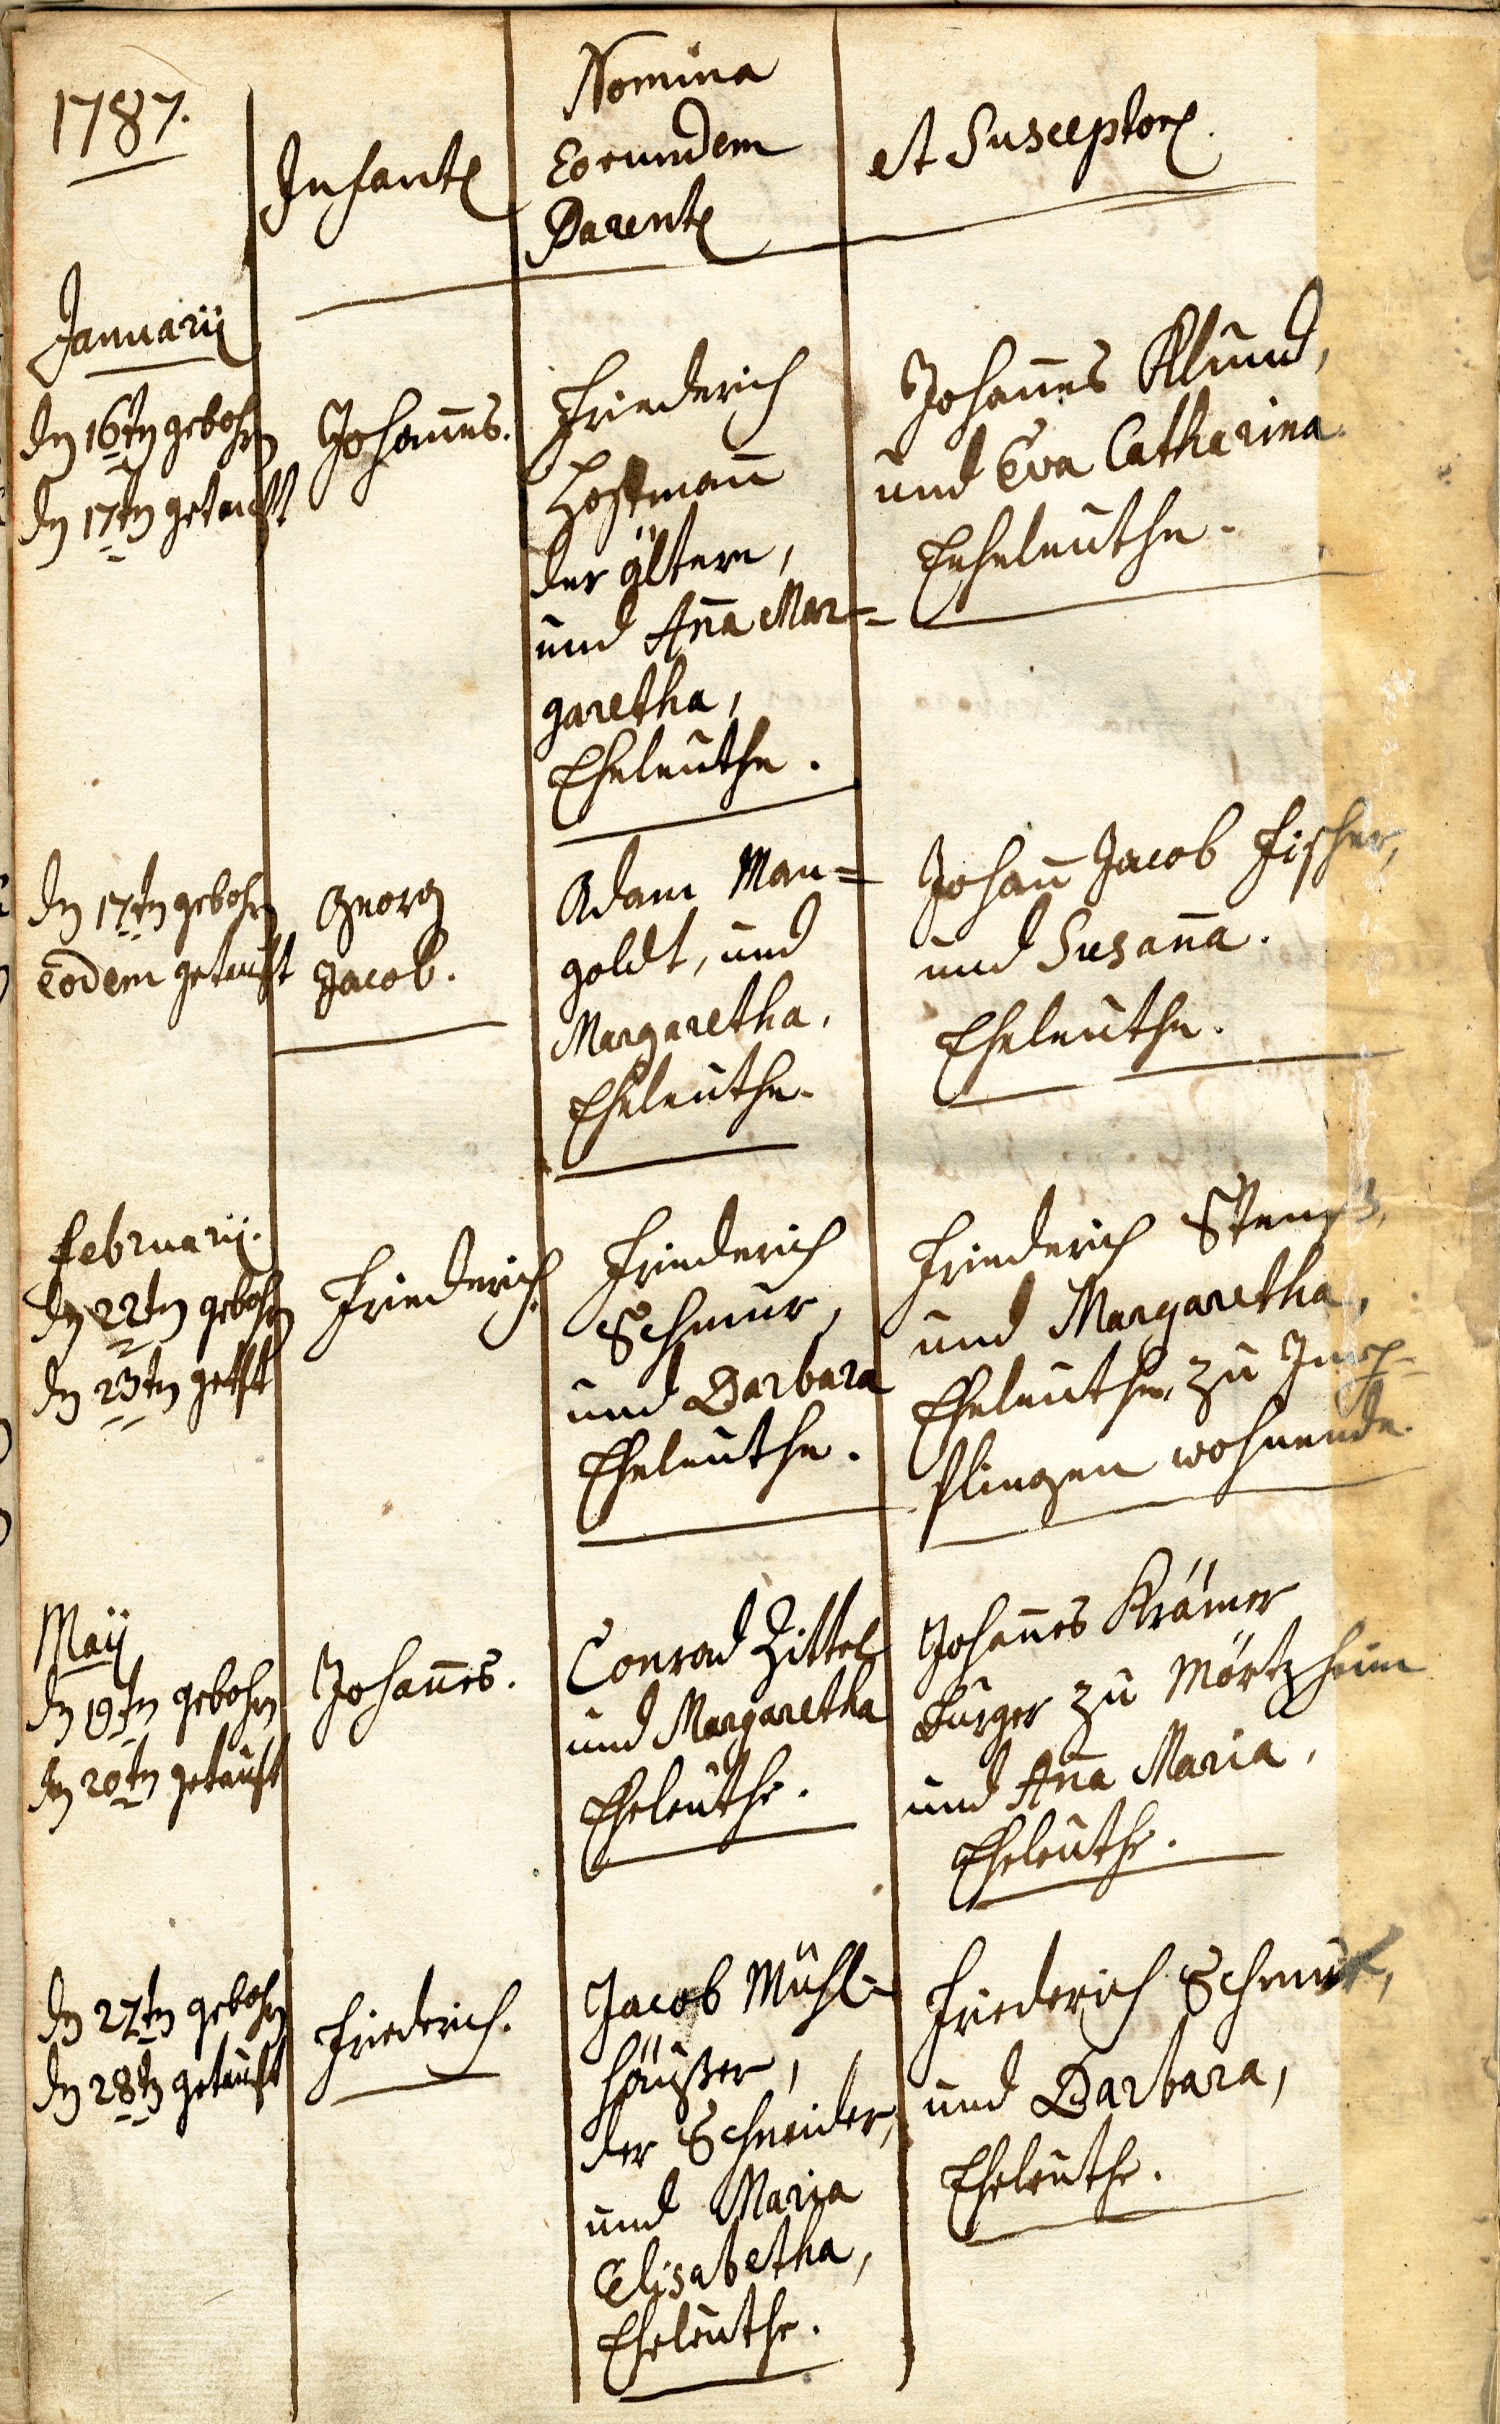 1787.
Infantes
Nomina
Eorundem
Parentes
et Susceptores.
Januarii
den 16ten gebohren
den 17ten getauft
Johannes.
Friederich
Hoffmann
der ältere,
und Anna Mar=
garetha,
Eheleuthe.
Johannes Klund,
und Eva Catharina
Eheleuthe.
den 17ten gebohren
eodem getauft
Georg
Jacob.
Adam Man=
goldt, und
Margaretha,
Eheleuthe.
Johann Jacob Fischer,
und Susanna.
Eheleuthe.
Februarii.
den 22ten gebohren
den 23ten getft
Friederich.
Friederich
Schnur,
und Barbara
Eheleuthe.
Friederich
und Margaretha,
Eheleuthe, zu Imp=
flingen wohnende.
Maij
den 19ten gebohren
den 20ten getauft
Johannes.
Conrad Zittel
und Margaretha
Eheleuthe.
Johannes Krämer
Burger zu Mörtzheim
und Anna Maria,
Eheleuthe.
den 27ten gebohren
den 28ten getauft
Friederich.
Jacob Mühl=
häußer,
der Schneider,
und Maria
Elisabetha,
Eheleuthe.
Friederich Schnur,
und Barbara,
Eheleuthe.